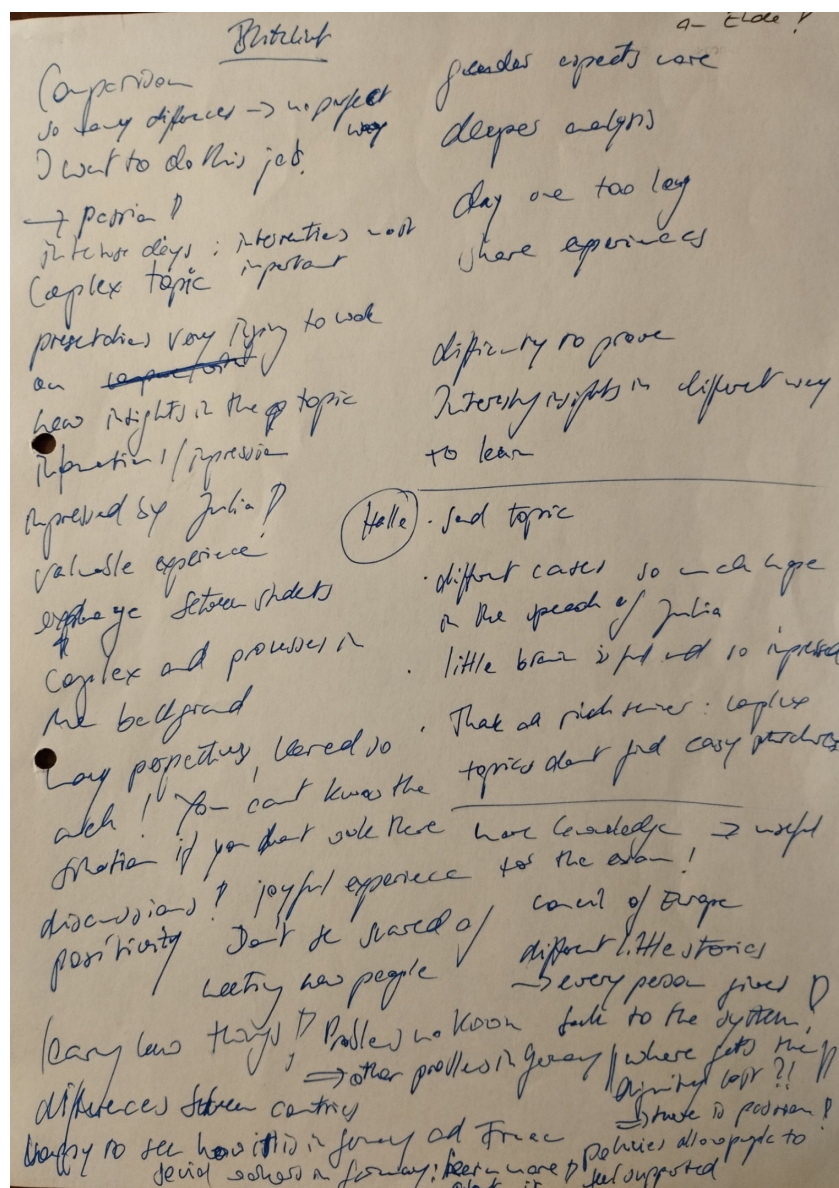 Blitzlicht
Comparison
so many differences → no perfect
way
I want to do this job.
→ passion!
intense days: interviews most
important
Complex topic
presentations very trying to work
on
new insights in the topic
information / impression
impressed by Julia!
valuable experience!
exchange between students
complex and processes in
the background
many perspectives, learned so
much! You can't know the
situation if you don't work there
discussions! joyful experience
positivity Don't be scared of
meeting new people
learning new things! Problems no Room
→ other problems in Germany
differences between countries
happy to see how it is in Germany and France
social workers in Germany: learn more
about it
gender aspects more
deeper analysis
day one too long
share experiences
difficulty to prove
Interesting insights in different way
to learn
Halle · sad topic
· different cases so much hope
in the speech of Julia
· little brain is full and so impressed
· topics don't find easy
more knowledge → useful
for the exam!
Council of Europe
different little stories
→ every person gives
back to the system!
where gets the
Dignity lost?!
→ there is passion!
policies allow people to
feel supported